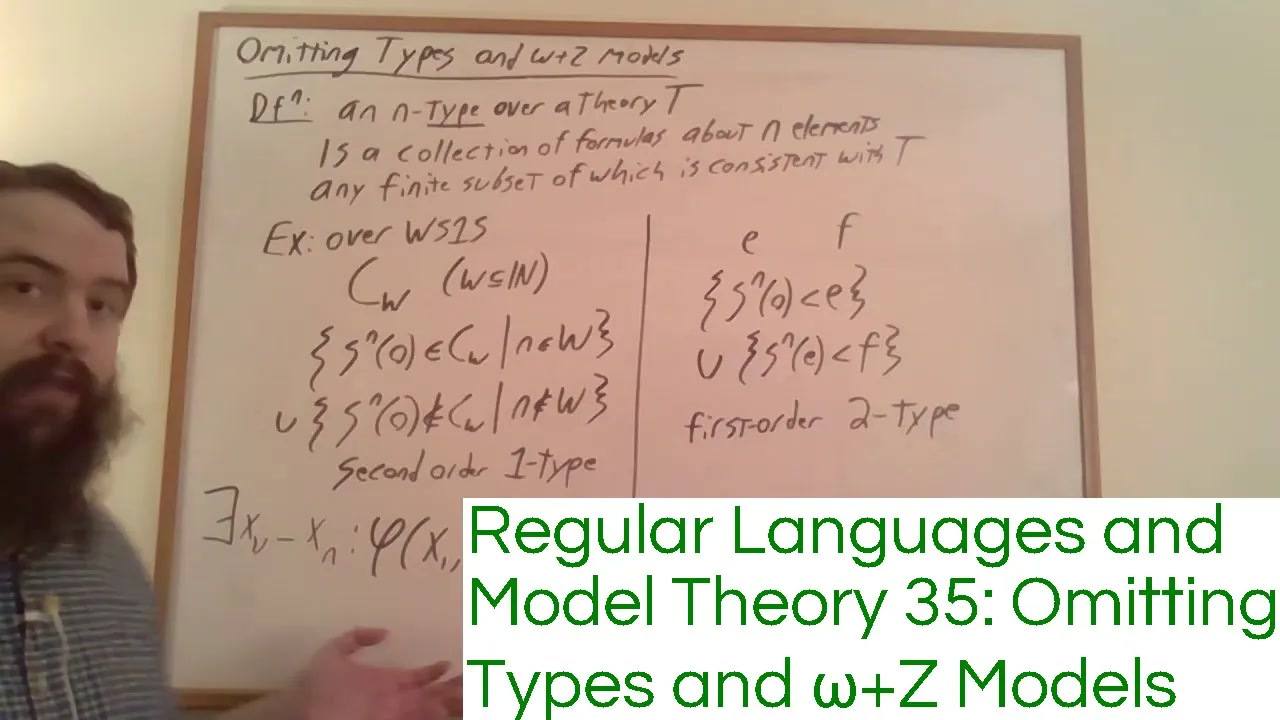 Omitting Types and ω+Z Models
Dfⁿ: an n-Type over a Theory T
Is a collection of formulas about n elements
any finite subset of which is consistent with T
Ex: over WS1S
C_W (W⊆ℕ)
{Sⁿ(0)∈C_W | n∈W}
∪ {Sⁿ(0)∉C_W | n∉W}
second order 1-type
e f
{Sⁿ(0)<e}
∪ {Sⁿ(e)<f}
first-order 2-type
∃x₁-xₙ:φ(x₁,
Regular Languages and
Model Theory 35: Omitting
Types and ω+Z Models